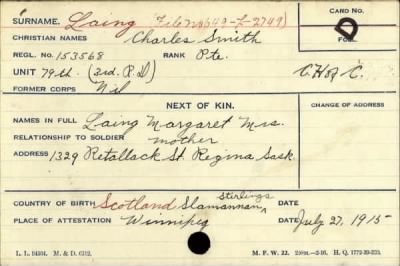 SURNAME. Laing (File No 649-L-2749) CARD NO.
CHRISTIAN NAMES Charles Smith FOL. D
REGL. NO. 153568 RANK Pte.
UNIT 79th. (3rd. R.D)
FORMER CORPS Nil
NEXT OF KIN. CHANGE OF ADDRESS
NAMES IN FULL Laing Margaret Mrs.
RELATIONSHIP TO SOLDIER mother
ADDRESS 1329 Retallack St. Regina Sask.
COUNTRY OF BIRTH Scotland Slamannan Stirlings DATE
PLACE OF ATTESTATION Winnipeg DATE July 27, 1915
M. F. W. 22.